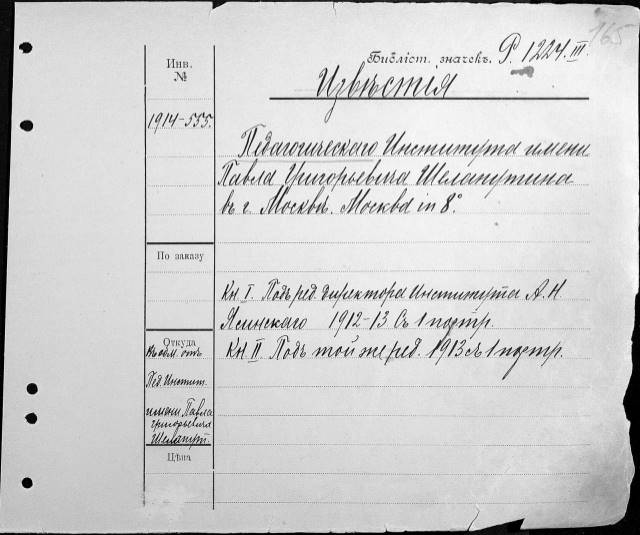 165
Инв.
№
Библіот. значекъ. Р. 1224.III.
Извѣстія
1914-555.
Педагогическаго Института имени
Павла Григорьевича Шелапутина
въ г. Москвѣ. Москва in 8°.
По заказу
Кн. I. Подъ ред. директора Института А. Н.
Ясинскаго 1912-13. Съ 1 портр.
Откуда
Кн. II. Подъ той же ред. 1913 съ 1 портр.
Пед. Инстит.
имени Павла
Григорьевича
Шелапут.
Цѣна